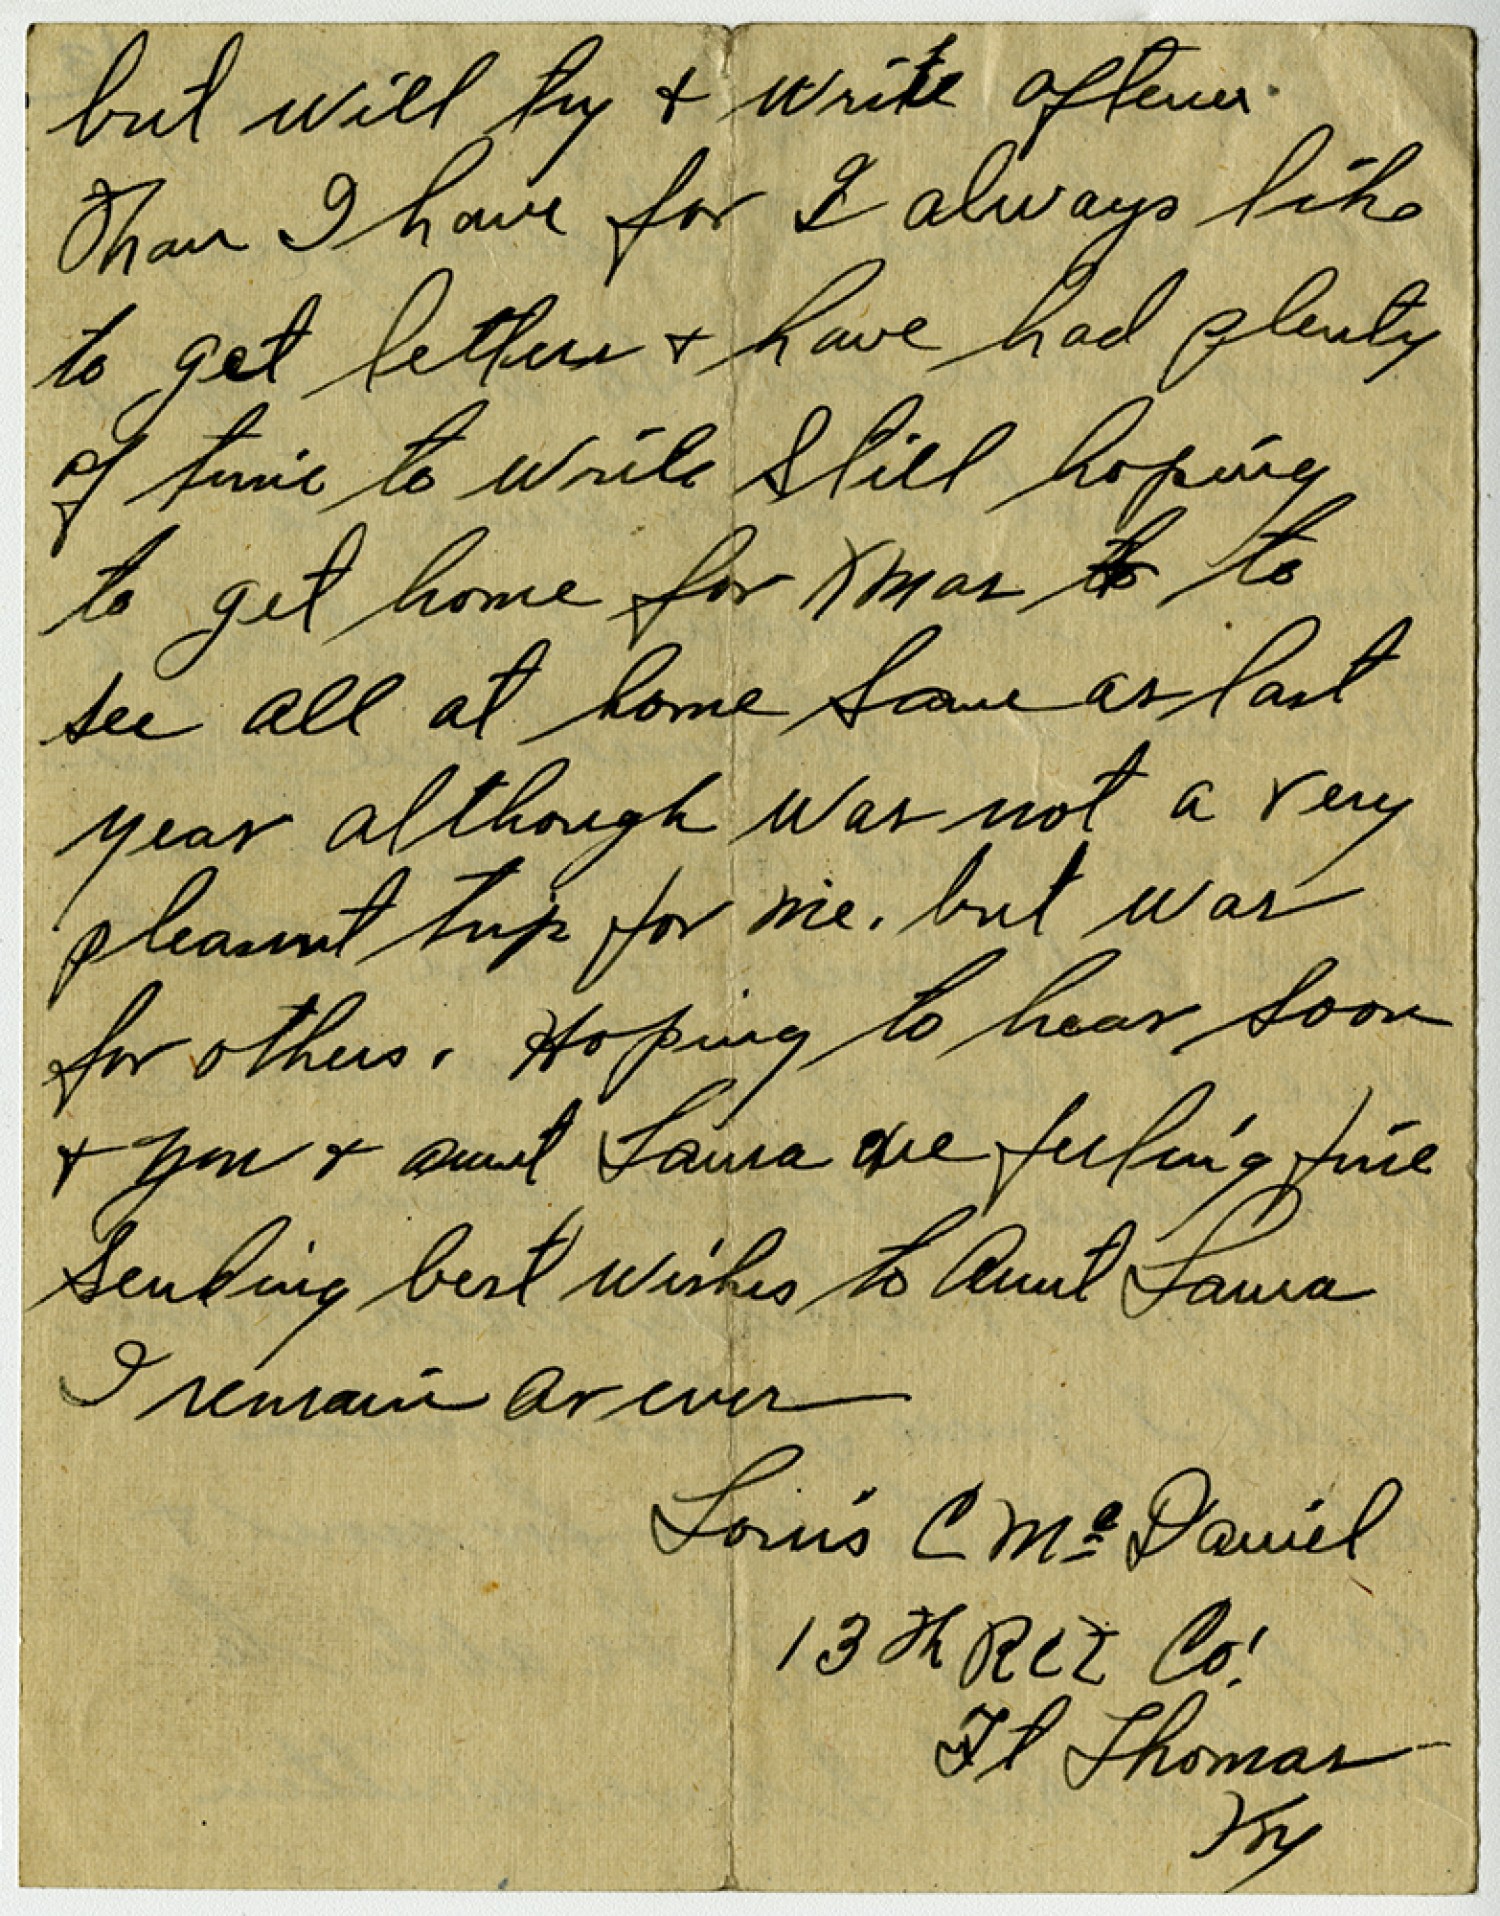 but will try + write oftener
Than I have for I always like
to get letters + have had plenty
of time to write Still hoping
to get home for Xmas to to
see all at home Same as last
year although was not a very
pleasant trip for me. but was
for others. Hoping to hear soon
+ you + aunt Laura are feeling fine
Sending best wishes to Aunt Laura
I remain as ever
Louis C McDaniel
13th Rct Co.
Ft Thomas
Ky